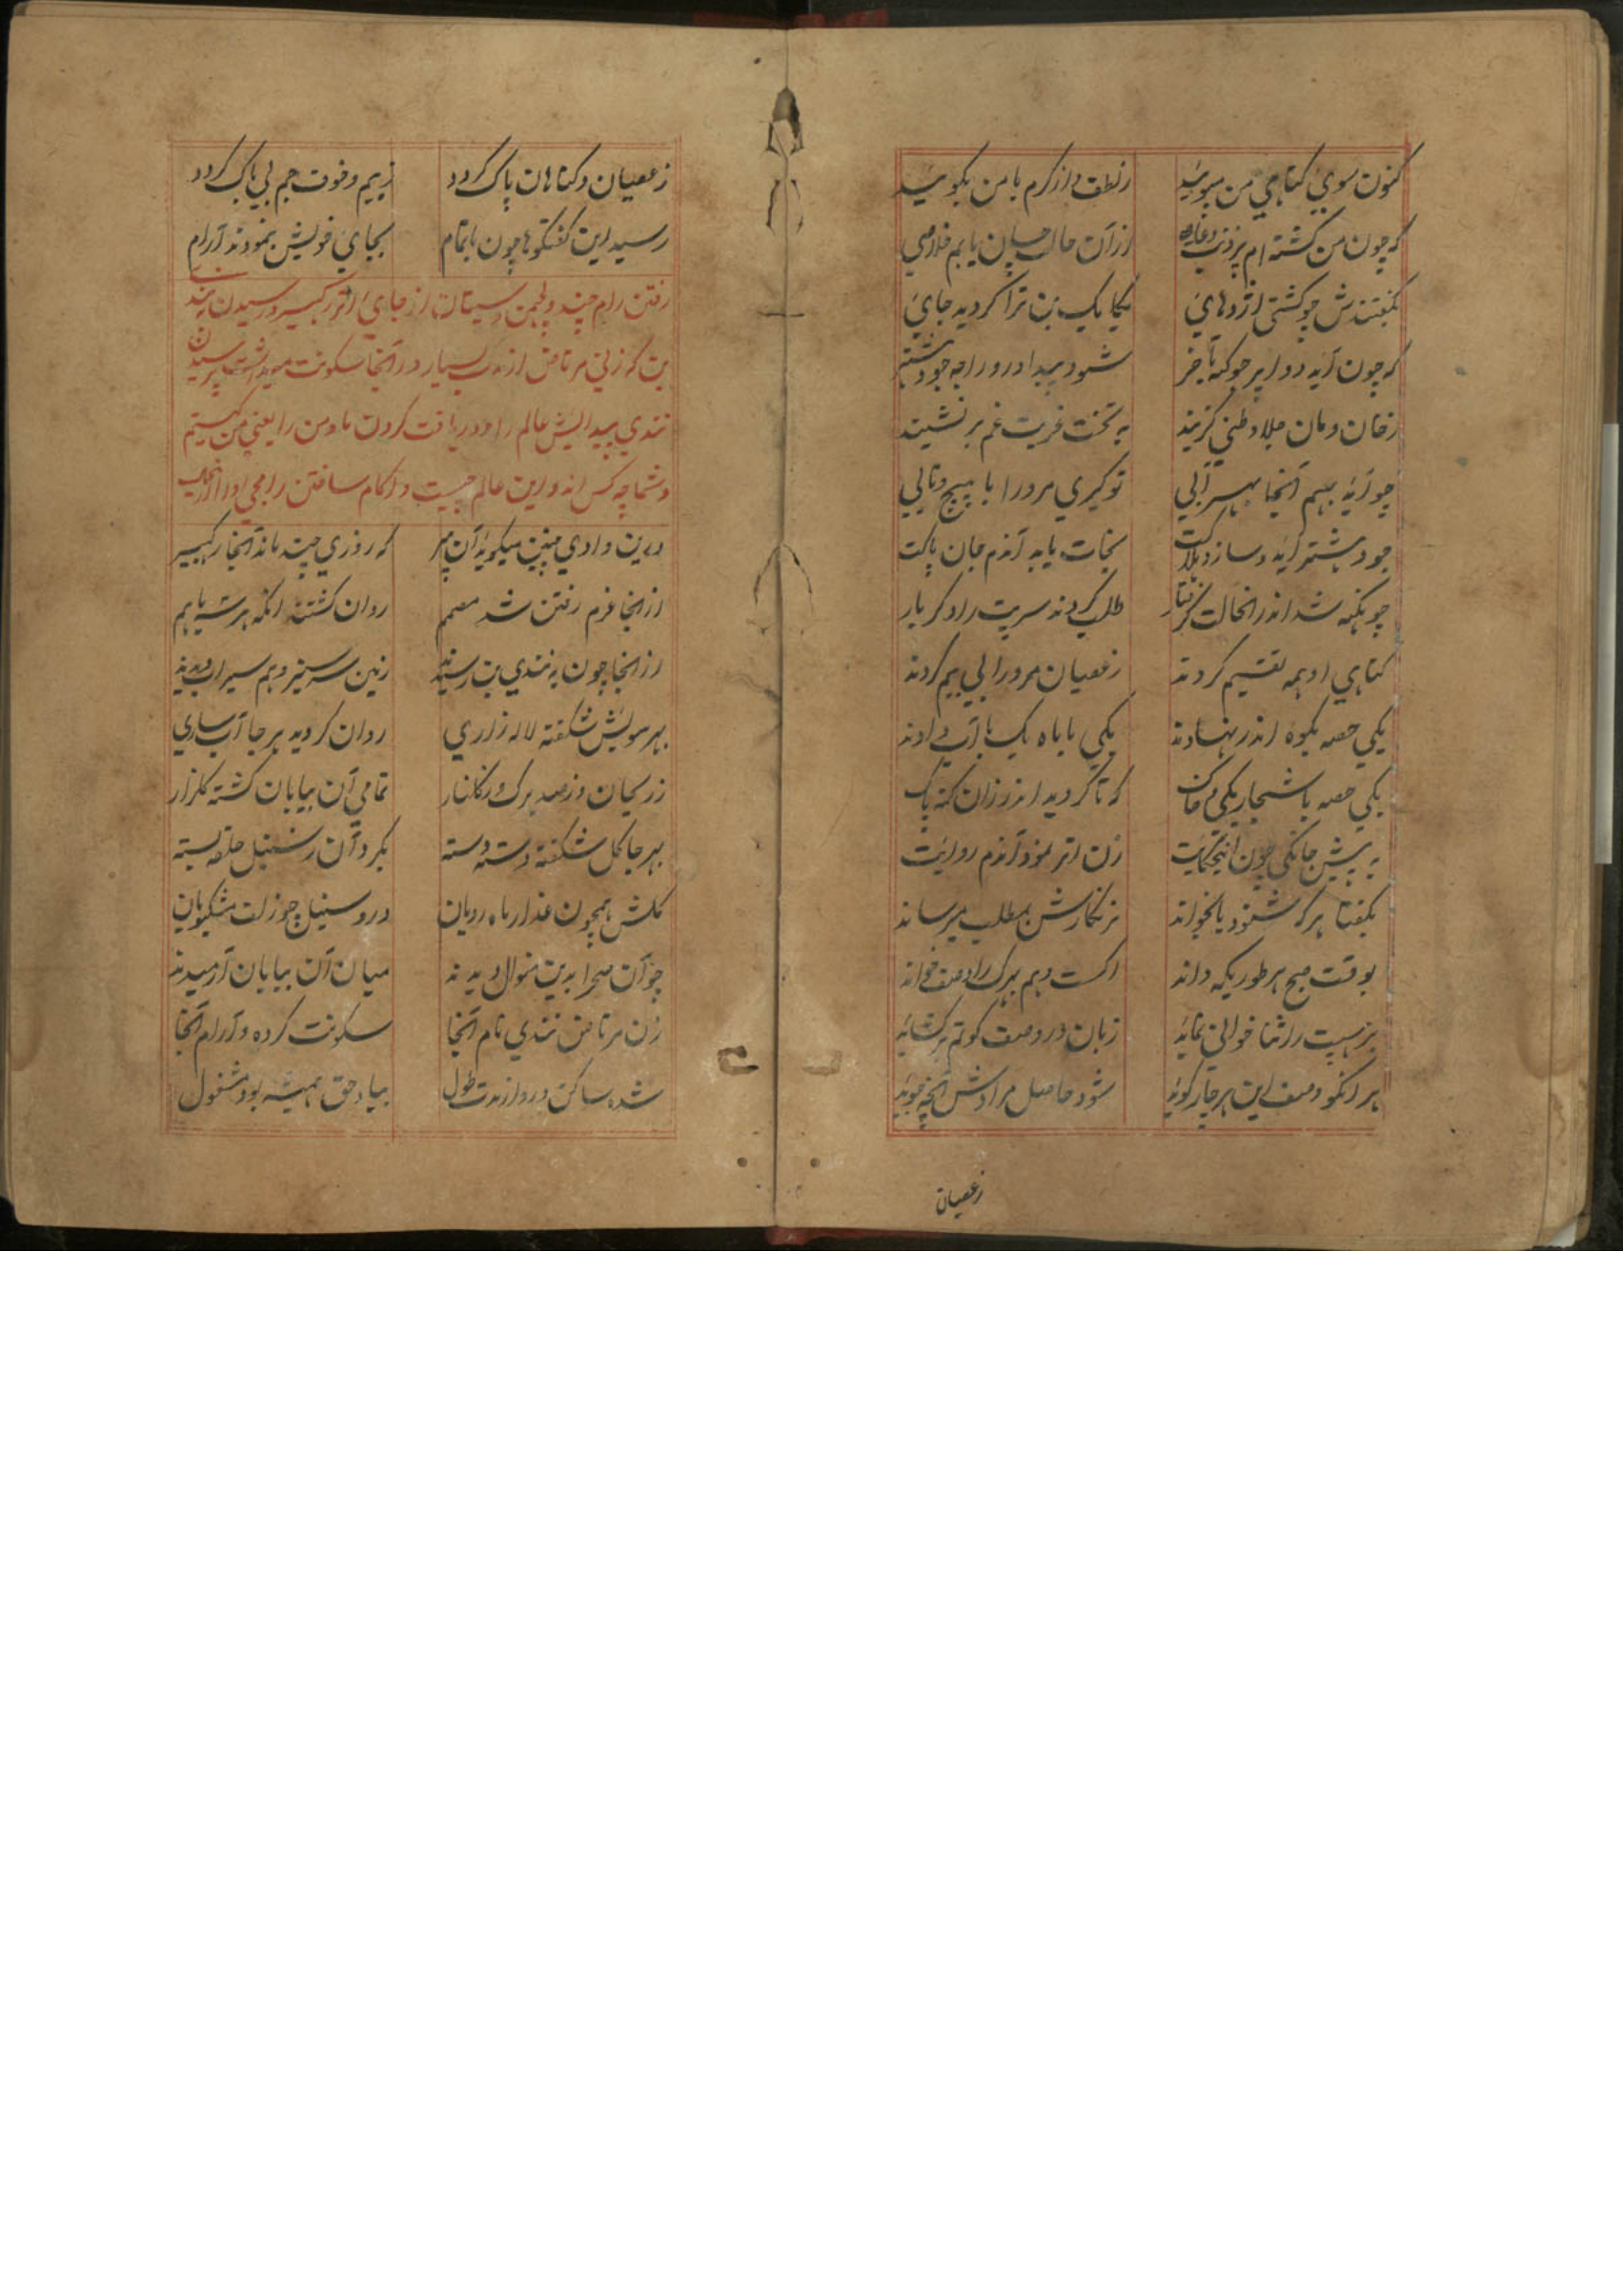 کنون سوی کناهی من مبوئید زلطف و از کرم با من بکوئید
که چون من کشته ام پر ذنب و عاصی ازان حال چسان یابم خلاصی
بکفتندش چو کشتی اژدهای یکایک بن ترا کردید جای
که چون آید دواپر جوکه آخر شود پیدا درو راجه جودهشتر
زخان و مان جلا وطنی کزیند به تخت غربت غم بر نشیند
چو آید بهیم آنجا بهر آبی تو کیری مرورا با پیچ و تابی
جودهشتر آید و سازد هلاکت نجات یابد آندم جان پاکت
چو نهکه شد اندر انحالت کرفتار طلب کردند سریت را دکر بار
کناهی او همه تقسیم کردند زعصیان مرورا بی بیم کردند
یکی حصه بکوه اندر نهادند یکی با ماه یک با آب دادند
یکی حصه باشجار یکی خاک که تا کردید اندر زان کنه پاک
به پیش جانکی چون این حکایت زن اتر نمود آندم روایت
بکفتا هر که شنود یا بخواند نرنکارش بمطلب میرساند
بوقت صبح هر طوریکه داند اکست و هم بهرک را وصف خواند
برهسپت را ثنا خوانی نماید زبان در وصف کوتم برکشاید
هر انکو وصف این هر چار کوید شود حاصل مرادش آنچه جوید
زعصیان
زعصیان و کناهان پاک کردد زبیم و خوف جم بی باک کردد
رسید این کفتکوها چون باتمام بجای خویش بنمودند آرام
رفتن رام چند و لچمن و سیتا از جای اتر رکهیسر و رسیدن به نندی
بن که زنی مرتاض از مدت بسیار در آنجا سکونت میداشت پرسیدن
نندی پیدایش عالم را و دریافت کردن ما و من را یعنی من کیستم
و شما چه کس اند و این عالم چیست و اکاه ساختن رامجی او را
درین وادی چنین میکوید آن پیر که روزی چند ماند آنجا رکهیسر
از انجا عزم رفتن شد مصمم روان کشتند انکه هر سه باهم
از انجا چون به نندی بن رسیدند زمین سرسبز و هم سیراب دیدند
بهر سویش شکفته لاله زاری روان کردید هر جا آب ساری
زریحان و زصد برک و زکلنار تمامی آن بیابان کشته کلزار
بهر جا کل شکفته دسته دسته بکرد آن ز سنبل حلقه بسته
کلش همچون عذار ماه رویان درو سنبل چو زلف مشکمویان
چو آن صحرا بدین منوال دیدند میان آن بیابان آرمیدند
زن مرتاض نندی نام آنجا سکونت کرده و آرام آنجا
شده ساکن درو از مدت طول بیاد حق همیشه بود مشغول